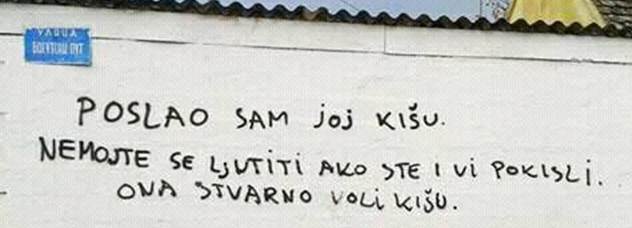 POSLAO SAM JOJ KIŠU.
NEMOJTE SE LJUTITI AKO STE I VI POKISLI.
ONA STVARNO VOLI KIŠU.